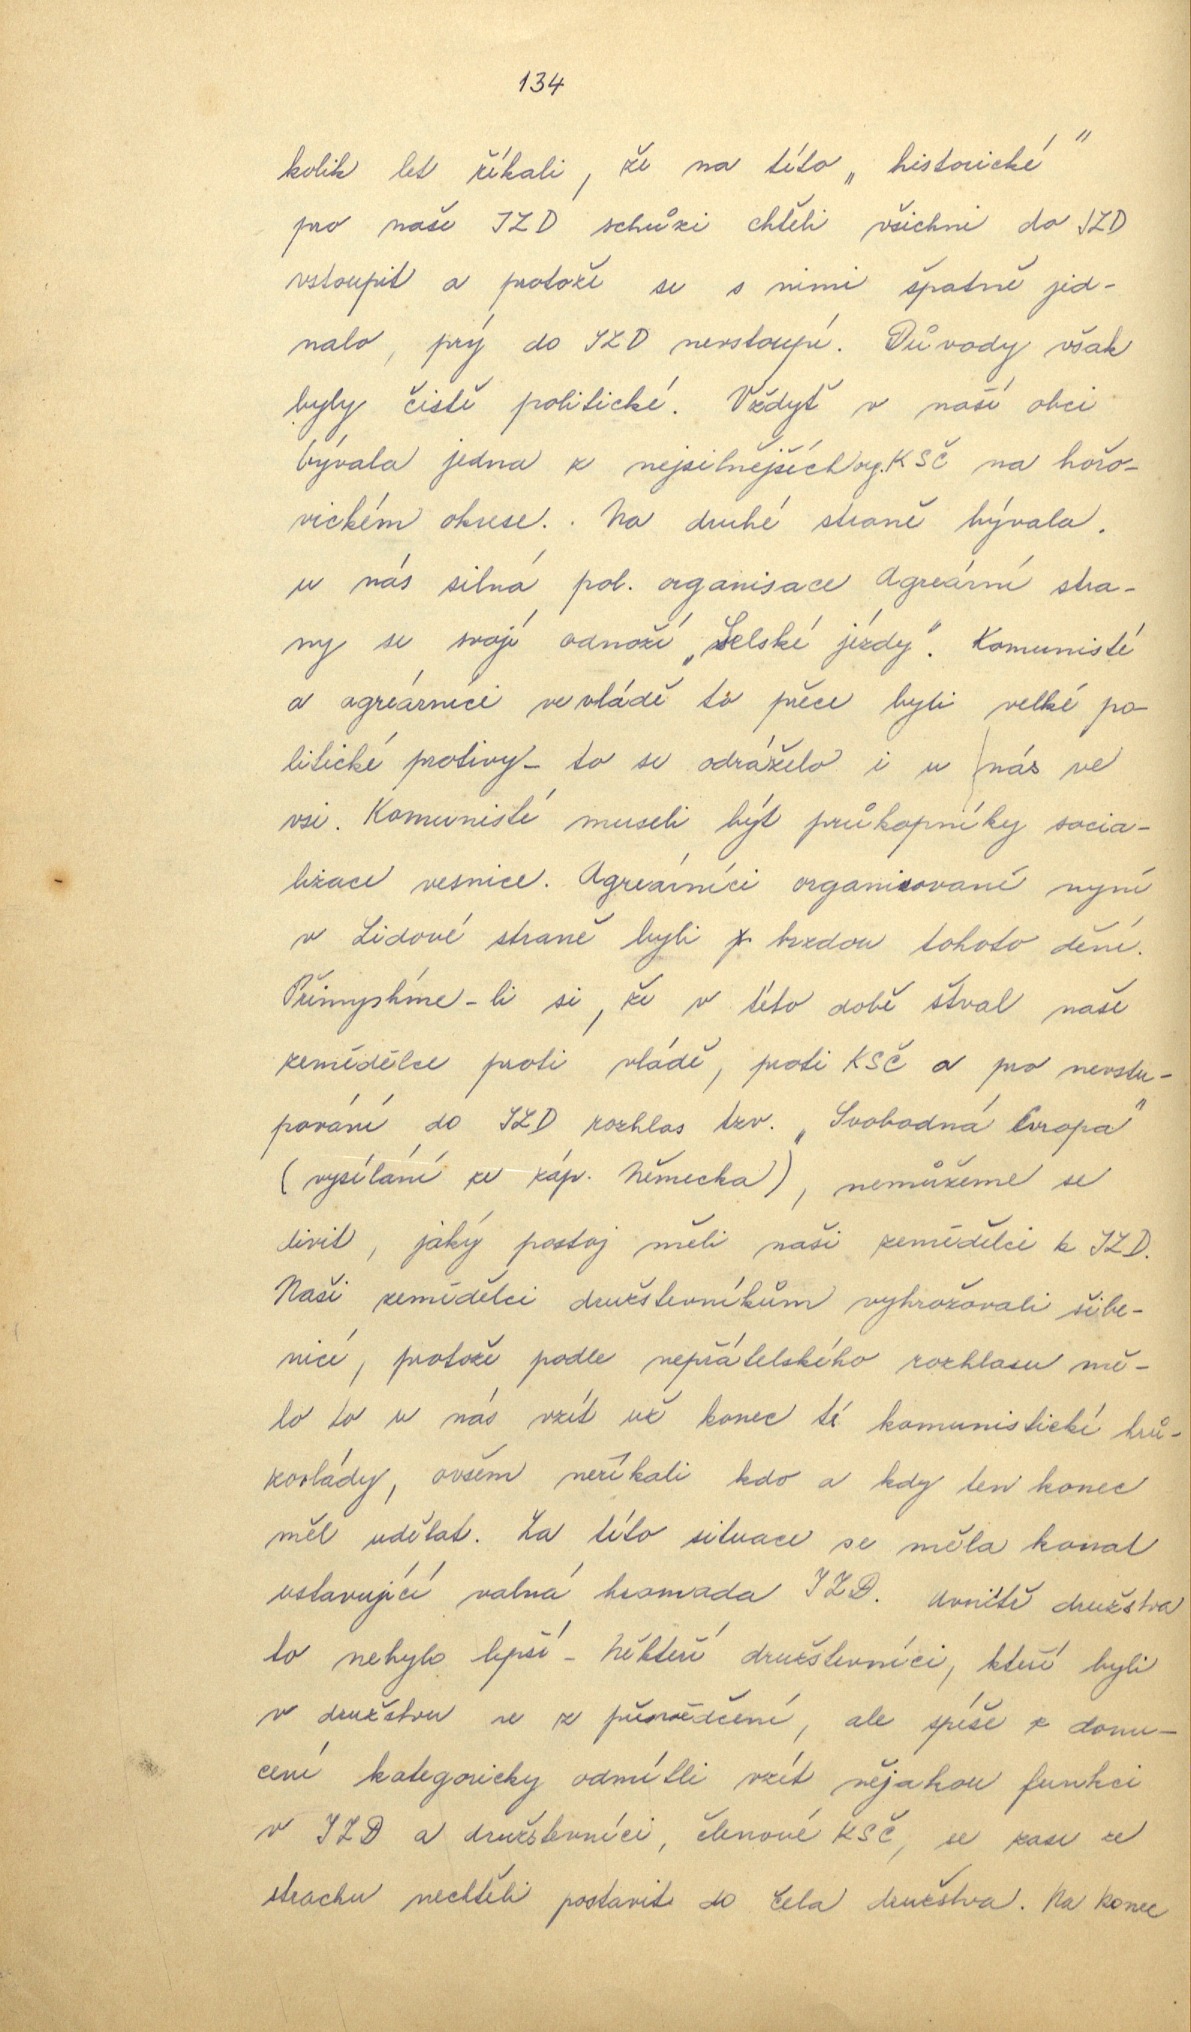 134
kolik let říkali, že na této „historické"
pro naše JZD schůzi chtěli všichni do JZD
vstoupit a protože se s nimi špatně jed-
nalo, prý do JZD nevstoupí. Důvody však
byly čistě politické. Vždyť v naší obci
bývala jedna z nejsilnějších org. KSČ na hořo-
vickém okrese. Na druhé straně bývala
u nás silná pol. organisace Agreární stra-
ny se svojí odnoží „Selské jízdy". Komunisté
a agreárníci ve vládě to přece byli velké po-
litické protivy - to se odráželo i u nás ve
vsi. Komunisté museli být průkopníky socia-
lizace vesnice. Agreárníci organisovaní nyní
v Lidové straně byli brzdou tohoto dění.
Přimyslíme-li si, že v této době štval naše
zemědělce proti vládě, proti KSČ a pro nevstu-
pování do JZD rozhlas tzv. „Svobodná Evropa"
(vysílání ze záp. Německa), nemůžeme se
divit, jaký postoj měli naši zemědělci k JZD.
Naši zemědělci družstevníkům vyhrožovali šibe-
nicí, protože podle nepřátelského rozhlasu mě-
lo to u nás vzít už konec té komunistické hrů-
zovlády, ovšem neříkali kdo a kdy ten konec
měl udělat. Za této situace se měla konat
ustavující valná hromada JZD. Uvnitř družstva
to nebylo lepší - Někteří družstevníci, kteří byli
v družstvu ne z přesvědčení, ale spíše z donu-
cení kategoricky odmítli vzít nějakou funkci
v JZD a družstevníci, členové KSČ, se zase ze
strachu nechtěli postavit do čela družstva. Na konec